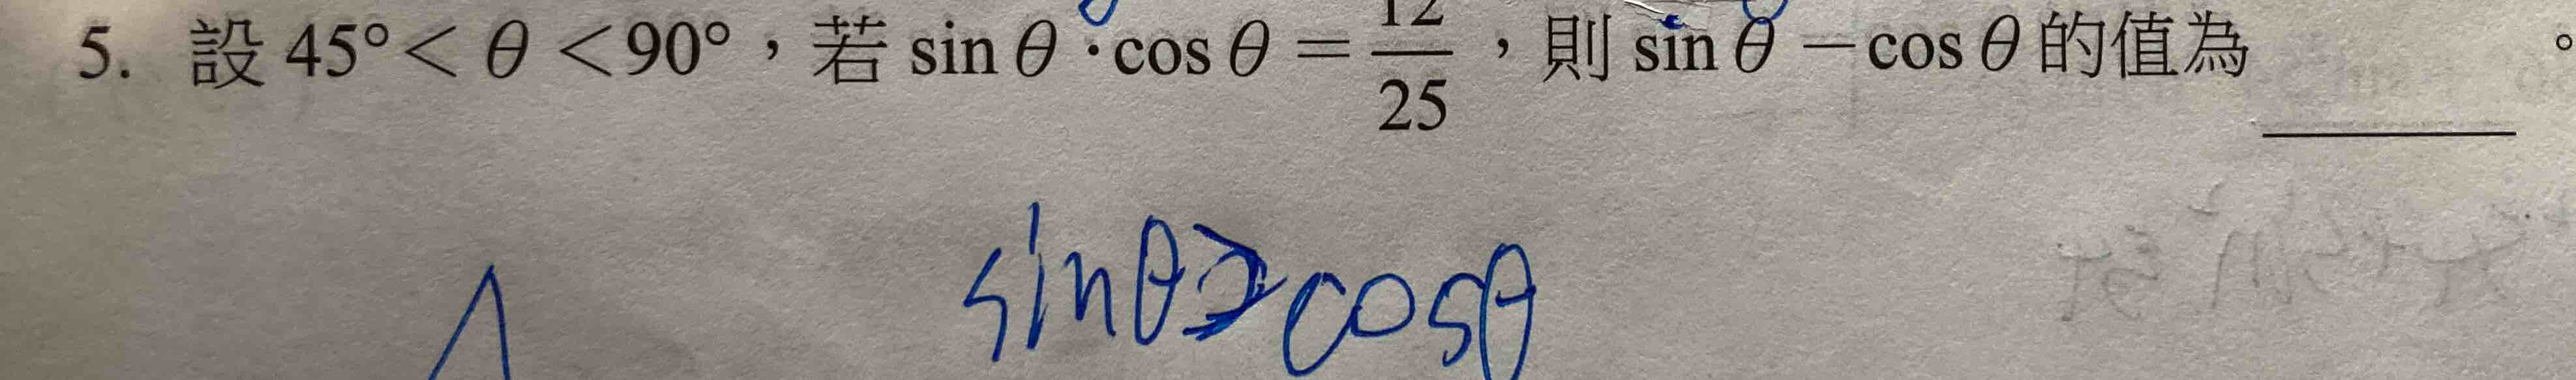 5. 設 45° < θ < 90°,若 sin θ · cos θ = 12/25,則 sin θ − cos θ 的值為 ______。
sinθ > cosθ